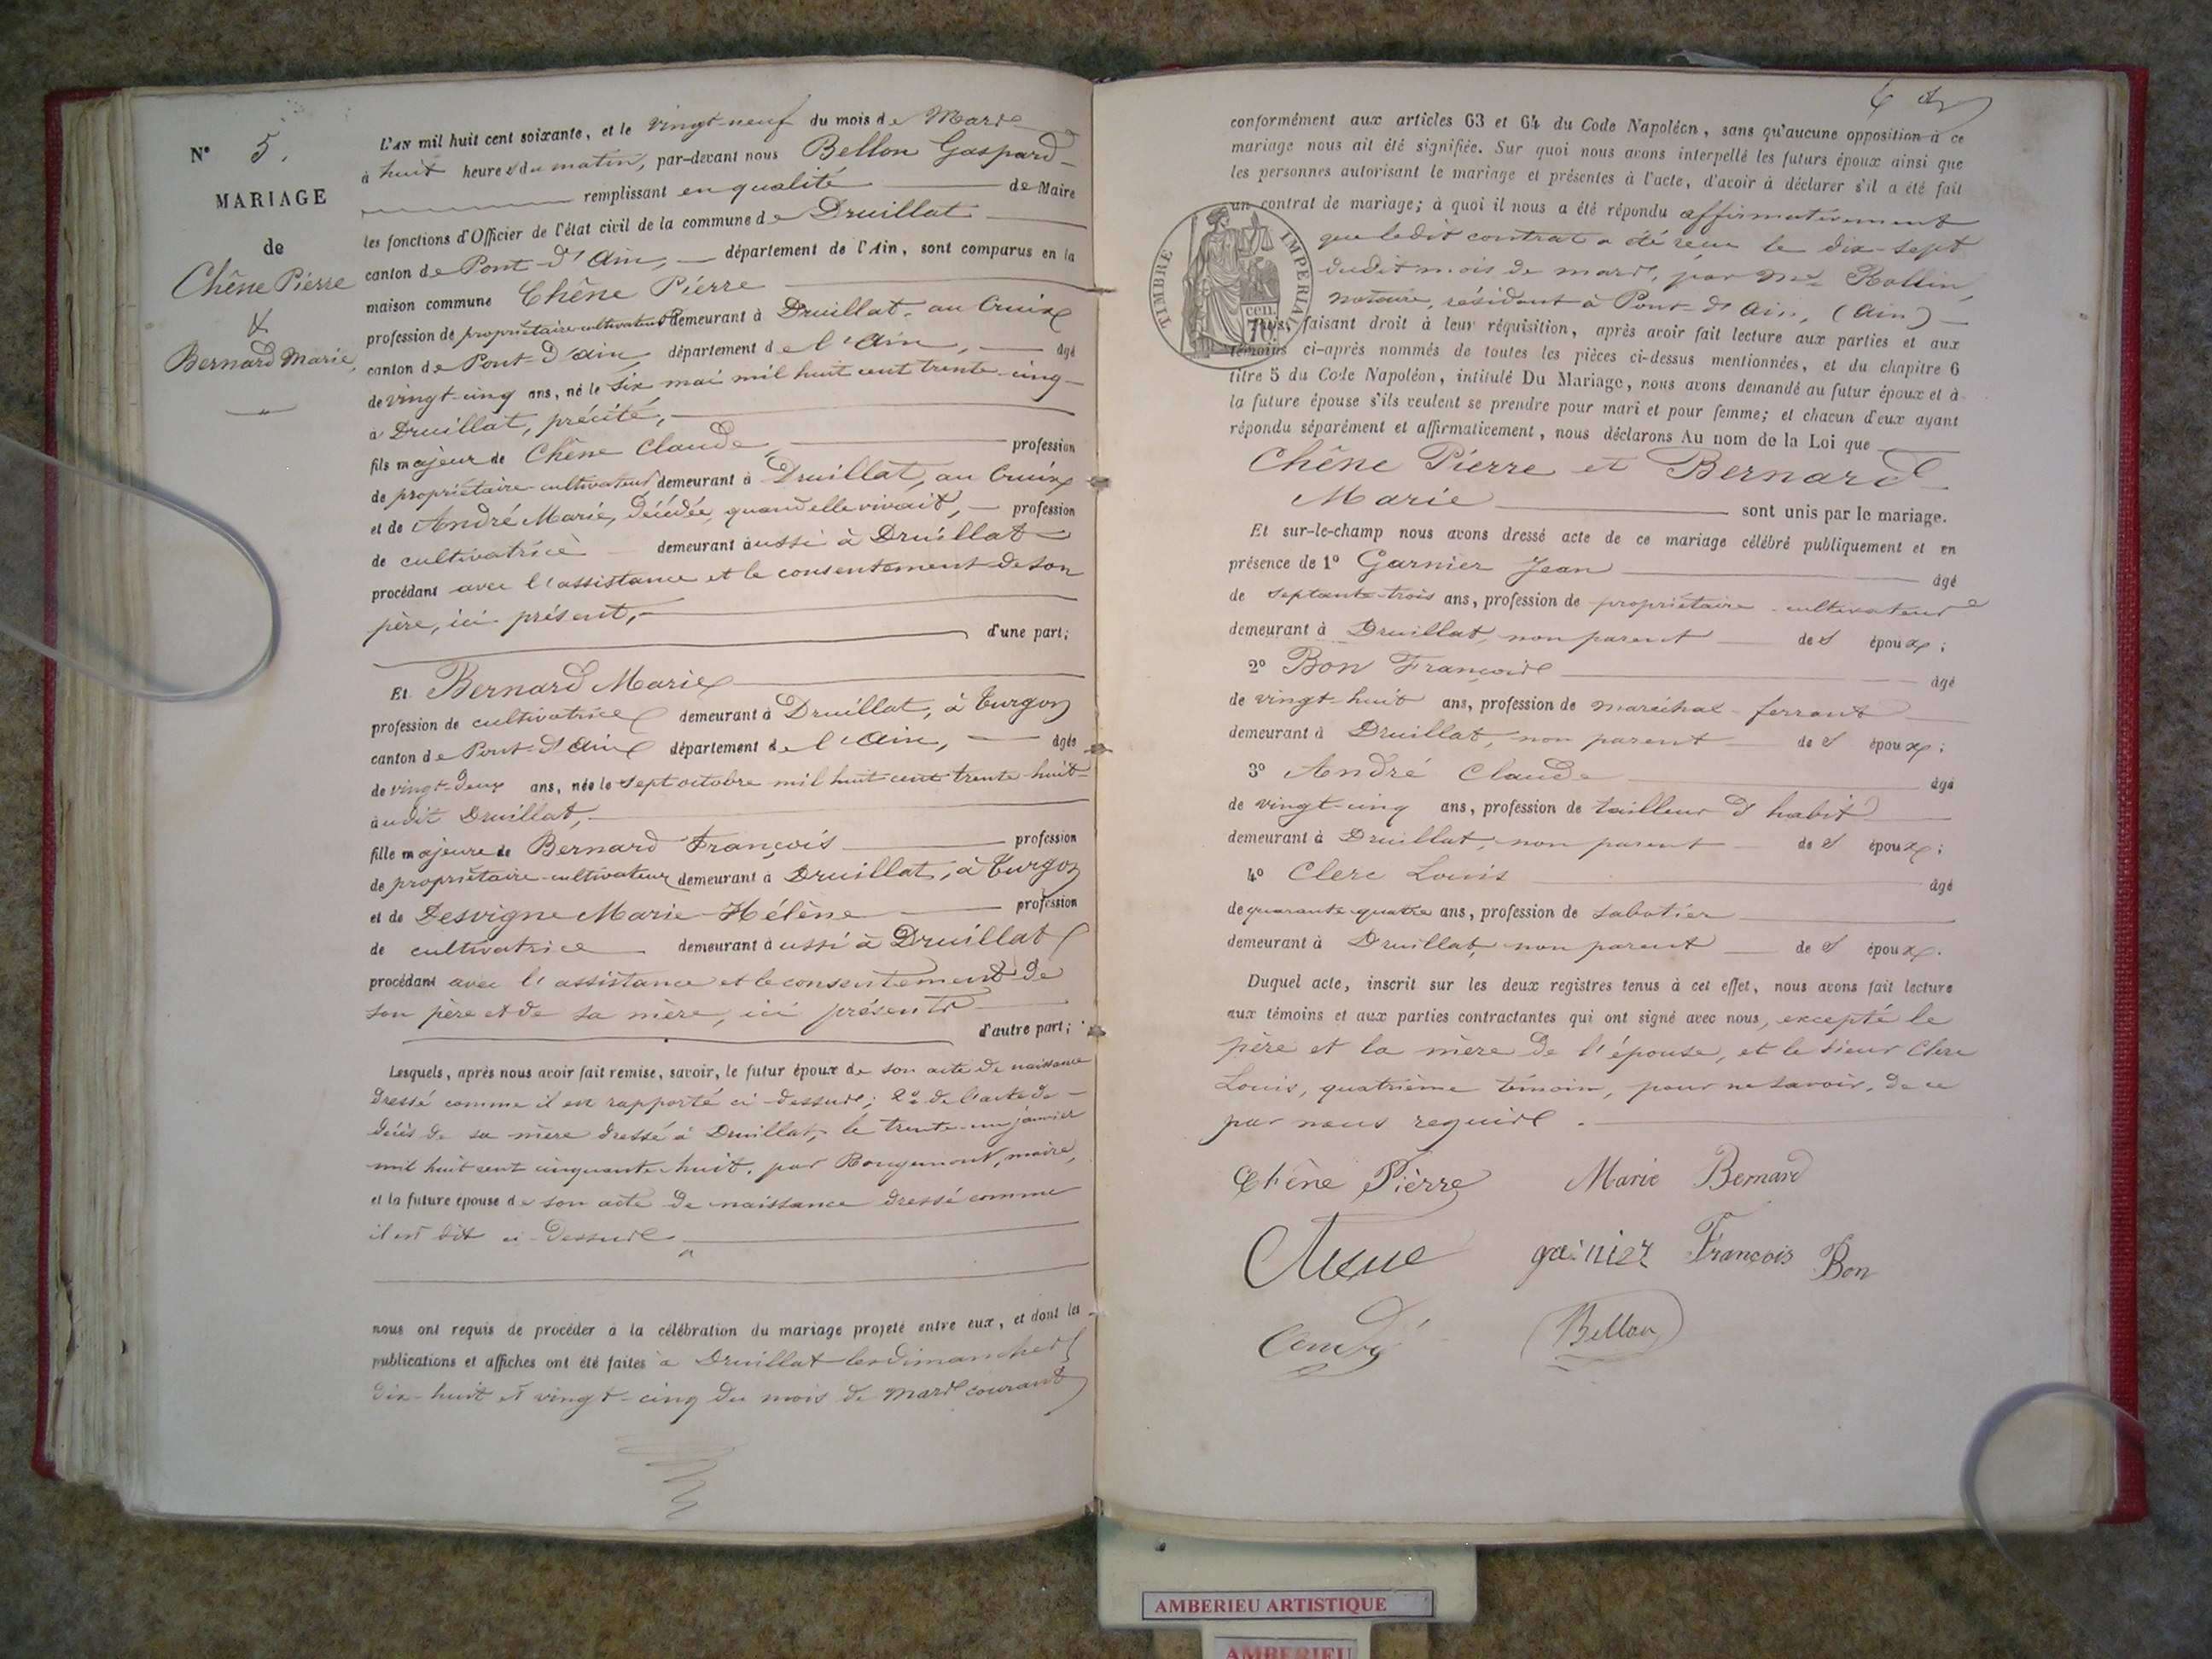 N° 5.
MARIAGE
de
Chêne Pierre
&
Bernard Marie,
L'AN mil huit cent soixante, et le vingt-neuf du mois de Mars
à huit heures du matin, par-devant nous Bellon Gaspard
remplissant en qualité de Maire
les fonctions d'Officier de l'état civil de la commune de Druillat
canton de Pont-d'Ain, département de l'Ain, sont comparus en la
maison commune Chêne Pierre
profession de propriétaire-cultivateur demeurant à Druillat, au Cruix
canton de Pont-d'Ain, département de l'Ain, âgé
de vingt-cinq ans, né le six mai mil huit cent trente-cinq
à Druillat, précité,
fils majeur de Chêne Claude, profession
de propriétaire-cultivateur demeurant à Druillat, au Cruix
et de André Marie, décédée, quand elle vivait, profession
de cultivatrice demeurant aussi à Druillat
procédant avec l'assistance et le consentement de son
père, ici présent,
d'une part;
Et Bernard Marie
profession de cultivatrice demeurant à Druillat, à Turgon
canton de Pont-d'Ain département de l'Ain, âgée
de vingt-deux ans, née le sept octobre mil huit cent trente-huit
audit Druillat,
fille majeure de Bernard François profession
de propriétaire-cultivateur demeurant à Druillat, à Turgon
et de Desvigne Marie-Hélène profession
de cultivatrice demeurant aussi à Druillat
procédant avec l'assistance et le consentement de
son père et de sa mère, ici présents
d'autre part;
Lesquels, après nous avoir fait remise, savoir, le futur époux de son acte de naissance
dressé comme il est rapporté ci-dessus; 2° de l'acte de
décès de sa mère dressé à Druillat, le trente-un janvier
mil huit cent cinquante-huit, par Rougemont, maire,
et la future épouse de son acte de naissance dressé comme
il est dit ci-dessus
nous ont requis de procéder à la célébration du mariage projeté entre eux, et dont les
publications et affiches ont été faites à Druillat les dimanches
dix-huit et vingt-cinq du mois de mars courant
6
conformément aux articles 63 et 64 du Code Napoléon, sans qu'aucune opposition à ce
mariage nous ait été signifiée. Sur quoi nous avons interpellé les futurs époux ainsi que
les personnes autorisant le mariage et présentes à l'acte, d'avoir à déclarer s'il a été fait
un contrat de mariage; à quoi il nous a été répondu affirmativement
que ledit contrat a été reçu le dix-sept
dudit mois de mars, par Me Rollin,
notaire, résidant à Pont-d'Ain, (Ain)
TIMBRE IMPERIAL
70 cen.
Puis, faisant droit à leur réquisition, après avoir fait lecture aux parties et aux
témoins ci-après nommés de toutes les pièces ci-dessus mentionnées, et du chapitre 6
titre 5 du Code Napoléon, intitulé Du Mariage, nous avons demandé au futur époux et à
la future épouse s'ils veulent se prendre pour mari et pour femme; et chacun d'eux ayant
répondu séparément et affirmativement, nous déclarons Au nom de la Loi que
Chêne Pierre et Bernard
Marie sont unis par le mariage.
Et sur-le-champ nous avons dressé acte de ce mariage célébré publiquement et en
présence de 1° Garnier Jean âgé
de septante-trois ans, profession de propriétaire-cultivateur
demeurant à Druillat, non parent des époux;
2° Bon François âgé
de vingt-huit ans, profession de maréchal-ferrant
demeurant à Druillat, non parent des époux;
3° André Claude âgé
de vingt-cinq ans, profession de tailleur d'habit
demeurant à Druillat, non parent des époux;
4° Clerc Louis âgé
de quarante-quatre ans, profession de sabotier
demeurant à Druillat, non parent des époux.
Duquel acte, inscrit sur les deux registres tenus à cet effet, nous avons fait lecture
aux témoins et aux parties contractantes qui ont signé avec nous, excepté le
père et la mère de l'épouse, et le sieur Clerc
Louis, quatrième témoin, pour ne savoir, de ce
par nous requis.
Chêne Pièrre Marie Bernard
Chêne garnier François Bon
André Bellon
AMBERIEU ARTISTIQUE
AMBERIEU